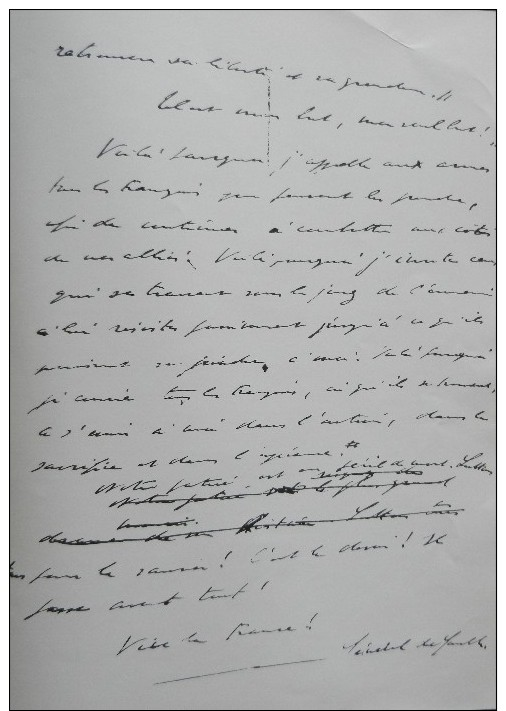 retrouvera sa liberté et sa grandeur.
Tel est mon but, mon seul but!
Voilà pourquoi j'appelle aux armes
tous les Français qui peuvent les prendre,
afin de continuer à combattre aux côtés
de nos alliés. Voilà pourquoi j'invite ceux
qui se trouvent sous le joug de l'ennemi
à lui résister passivement jusqu'à ce qu'ils
puissent se joindre à moi. Voilà pourquoi
je convie tous les Français, où qu'ils se trouvent,
à s'unir à moi dans l'action, dans le
sacrifice et dans l'espérance.
Notre patrie est en péril de mort. Luttons
Notre patrie est le plus grand
Luttons tous
tous pour la sauver! C'est le devoir! Il
passe avant tout!
Vive la France!
Général de Gaulle.